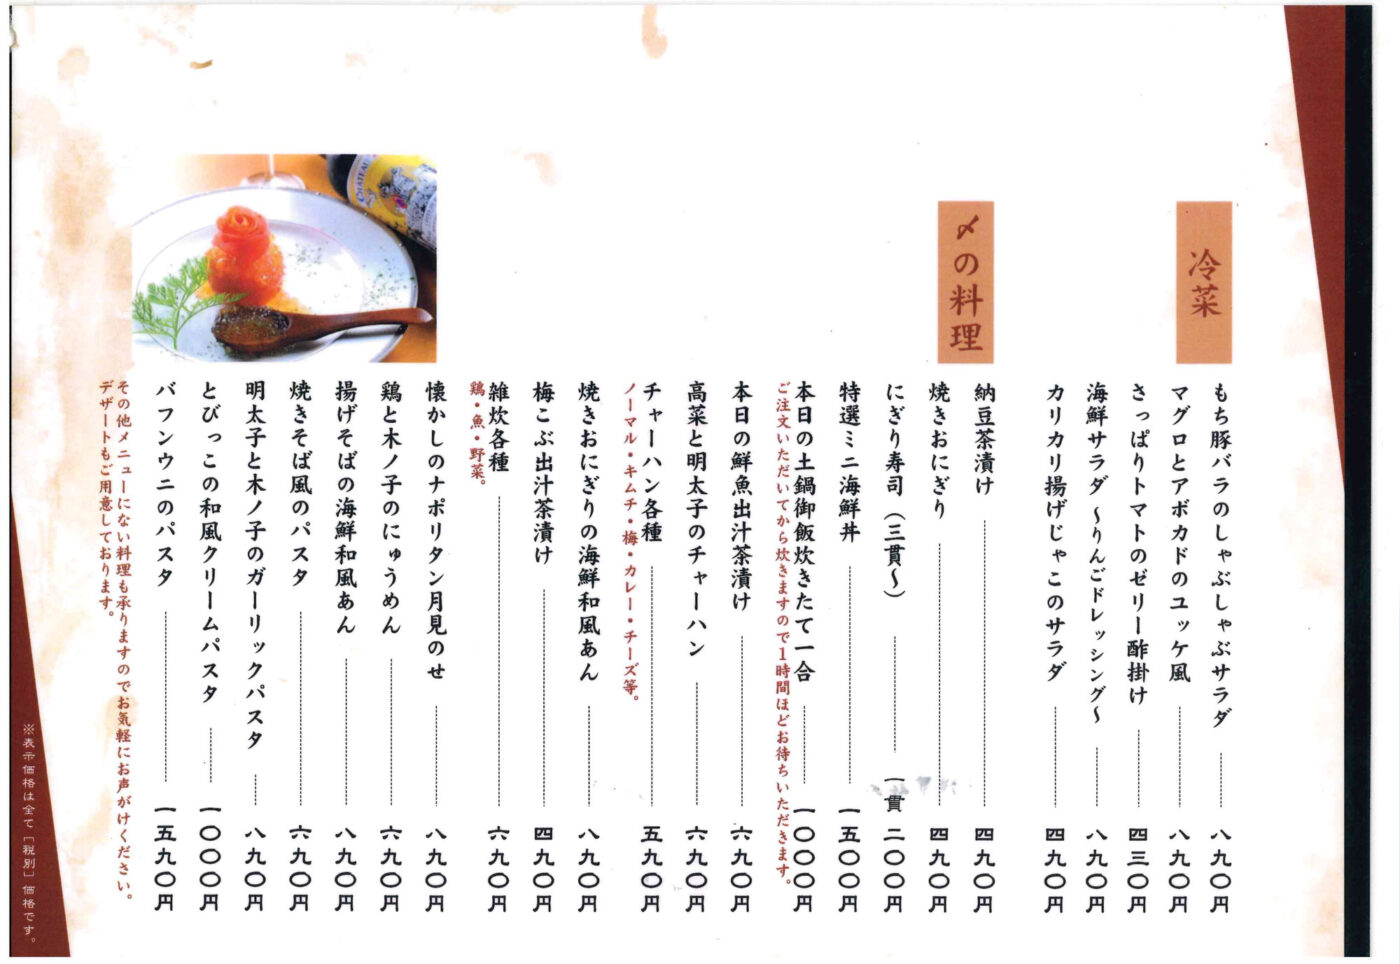 冷菜
もち豚バラのしゃぶしゃぶサラダ 八九〇円
マグロとアボカドのユッケ風 八九〇円
さっぱりトマトのゼリー酢掛け 四三〇円
海鮮サラダ～りんごドレッシング～ 八九〇円
カリカリ揚げじゃこのサラダ 四九〇円
〆の料理
納豆茶漬け 四九〇円
焼きおにぎり 四九〇円
にぎり寿司（三貫～） 一貫 二〇〇円
特選ミニ海鮮丼 一五〇〇円
本日の土鍋御飯炊きたて一合 一〇〇〇円
ご注文いただいてから炊きますので1時間ほどお待ちいただきます。
本日の鮮魚出汁茶漬け 六九〇円
高菜と明太子のチャーハン 六九〇円
チャーハン各種 五九〇円
ノーマル・キムチ・梅・カレー・チーズ等。
焼きおにぎりの海鮮和風あん 八九〇円
梅こぶ出汁茶漬け 四九〇円
雑炊各種 六九〇円
鶏・魚・野菜。
懐かしのナポリタン月見のせ 八九〇円
鶏と木ノ子のにゅうめん 六九〇円
揚げそばの海鮮和風あん 八九〇円
焼きそば風のパスタ 六九〇円
明太子と木ノ子のガーリックパスタ 八九〇円
とびっこの和風クリームパスタ 一〇〇〇円
バフンウニのパスタ 一五九〇円
その他メニューにない料理も承りますのでお気軽にお声がけください。
デザートもご用意しております。
※表示価格は全て［税別］価格です。
CHATEAU